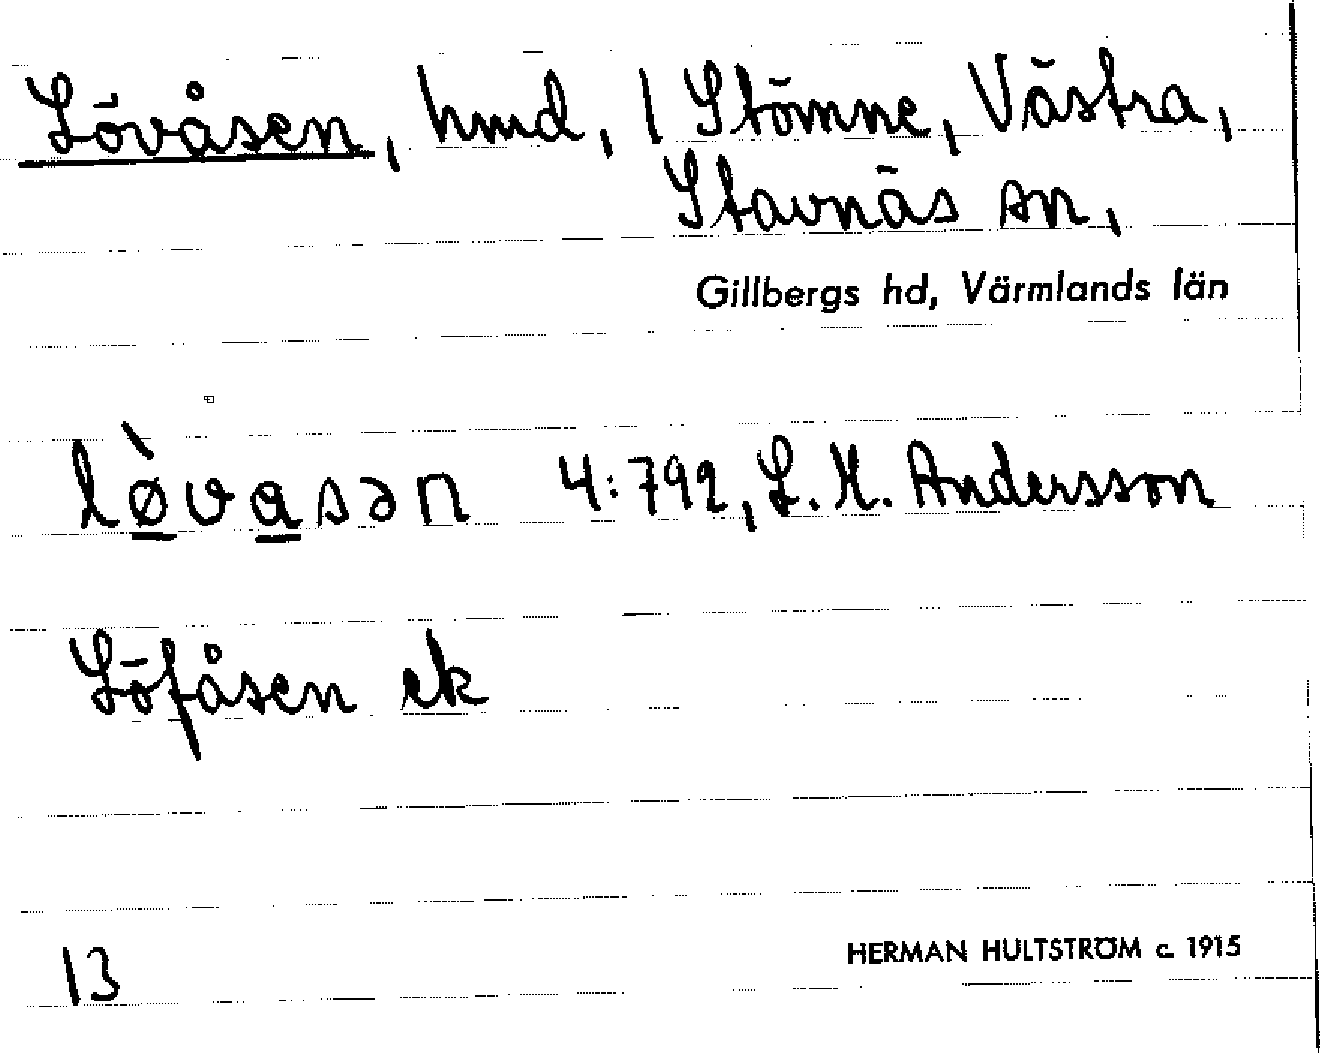 Lövåsen, hmd, 1 Stömne, Västra,
Stavnäs sn,
Gillbergs hd, Värmlands län
lø̱̀va̱sən 4:792, L. M. Andersson
Löfåsen ek
13
HERMAN HULTSTRÖM c. 1915